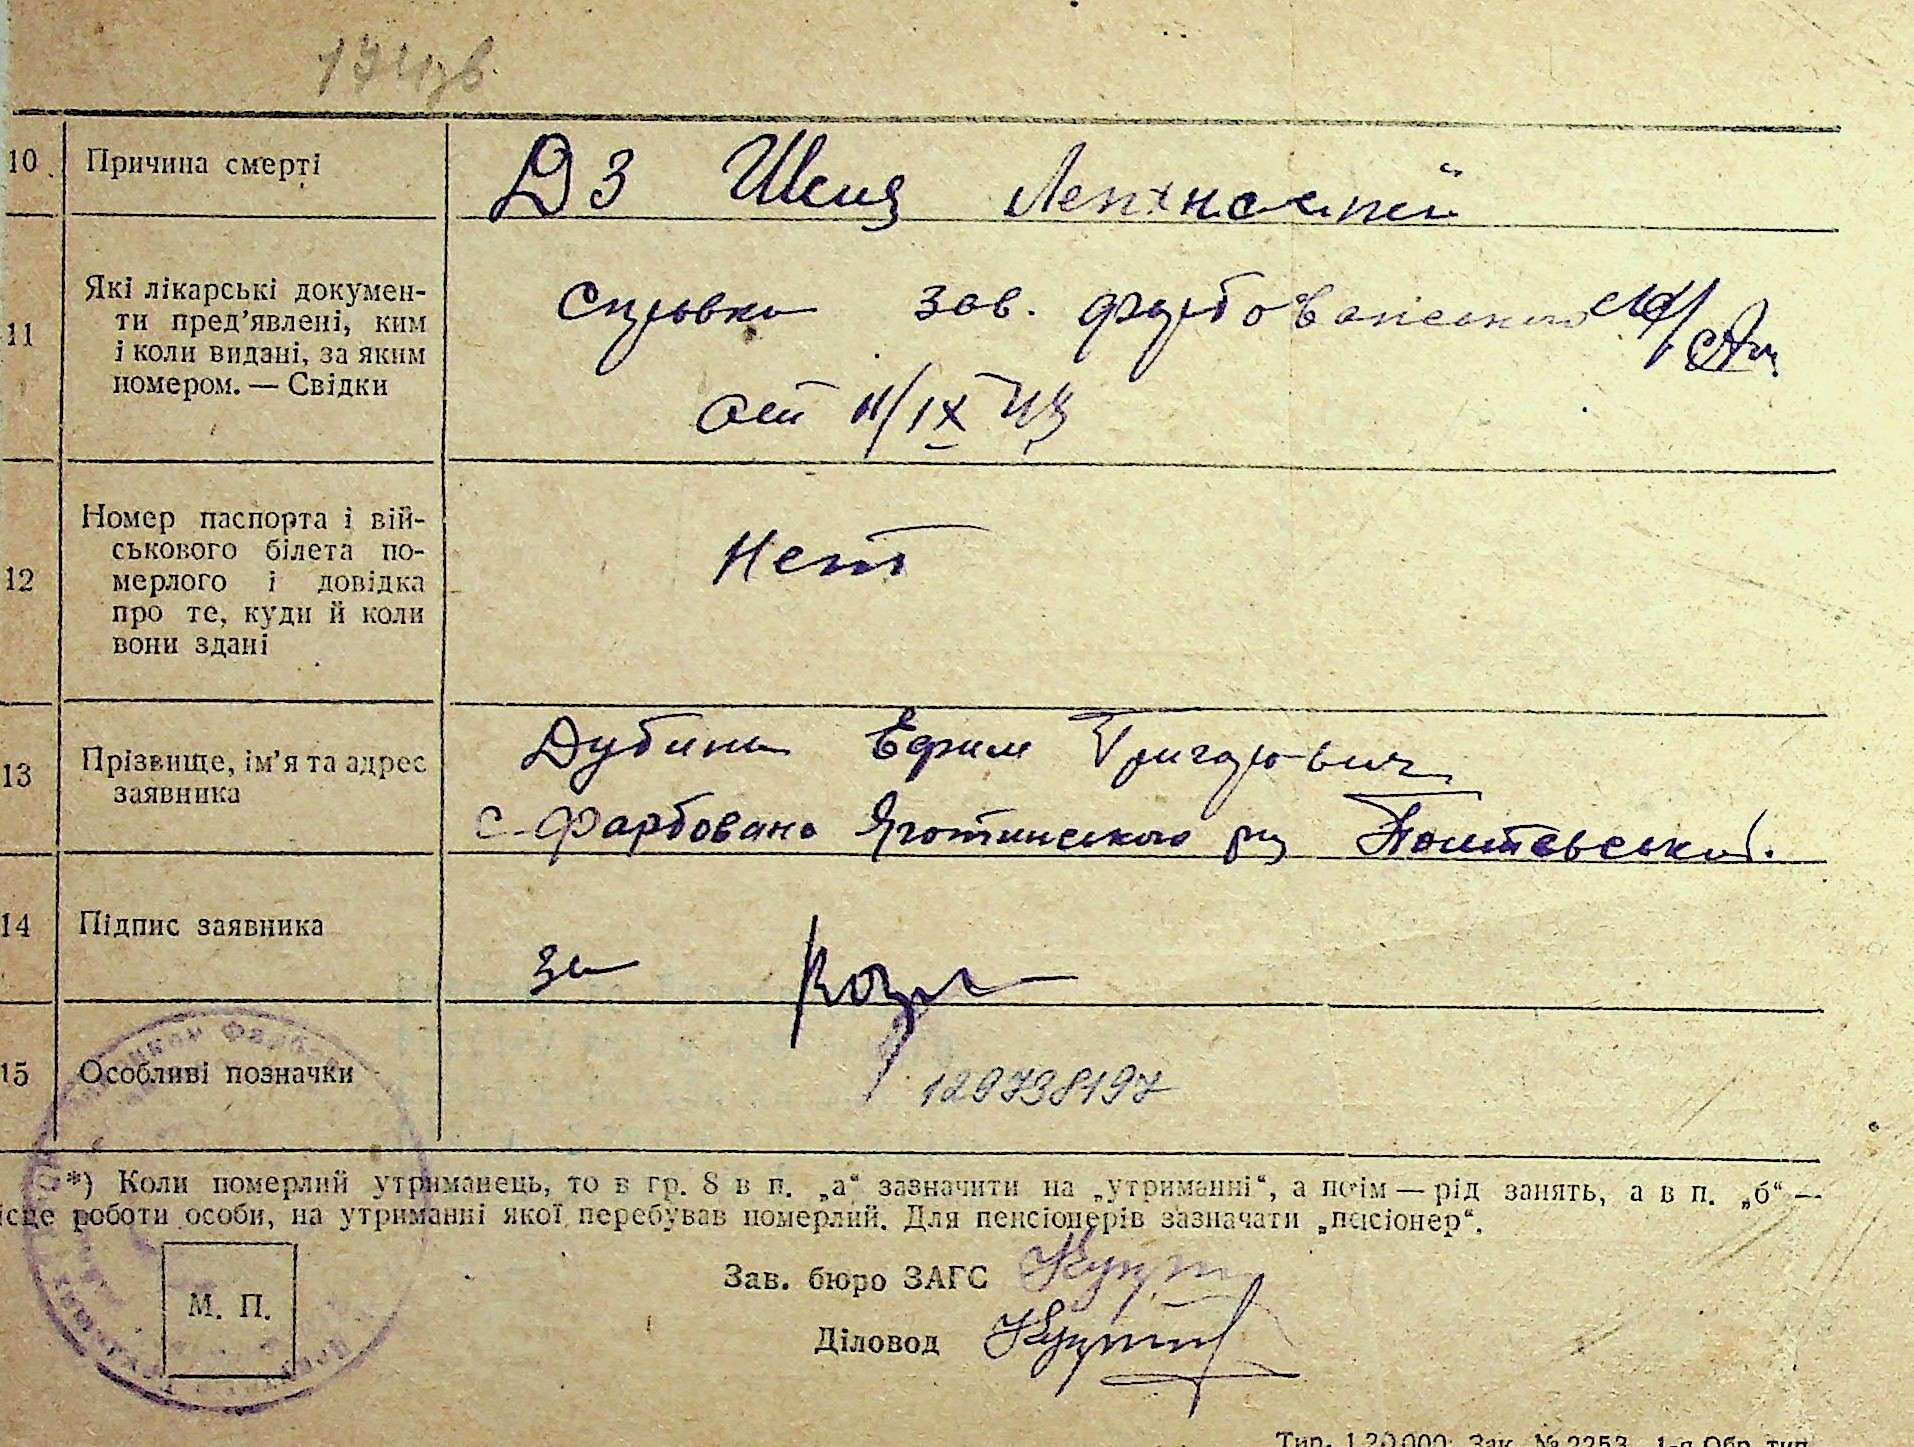 10 Причина смерті
11 Які лікарські докумен-
ти пред’явлені, ким
і коли видані, за яким
номером. — Свідки
Справка зав.
от 11/IX
12 Номер паспорта і вій-
ськового білета по-
мерлого і довідка
про те, куди й коли
вони здані
Нет
13 Прізвище, ім’я та адрес
заявника
Дубина Ефим Григорович
с. Фарбовано Яготинського Полтавської
14 Підпис заявника
за
15 Особливі позначки
129738197
*) Коли померлий утриманець, то в гр. 8 в п. „а“ зазначити на „утриманні“, а потім — рід занять, а в п. „б“ —
місце роботи особи, на утриманні якої перебував померлий. Для пенсіонерів зазначати „пенсіонер“.
Зав. бюро ЗАГС
М. П.
Діловод
Тир. 120.000. Зак. № 2253. 1-а Обр. тип.